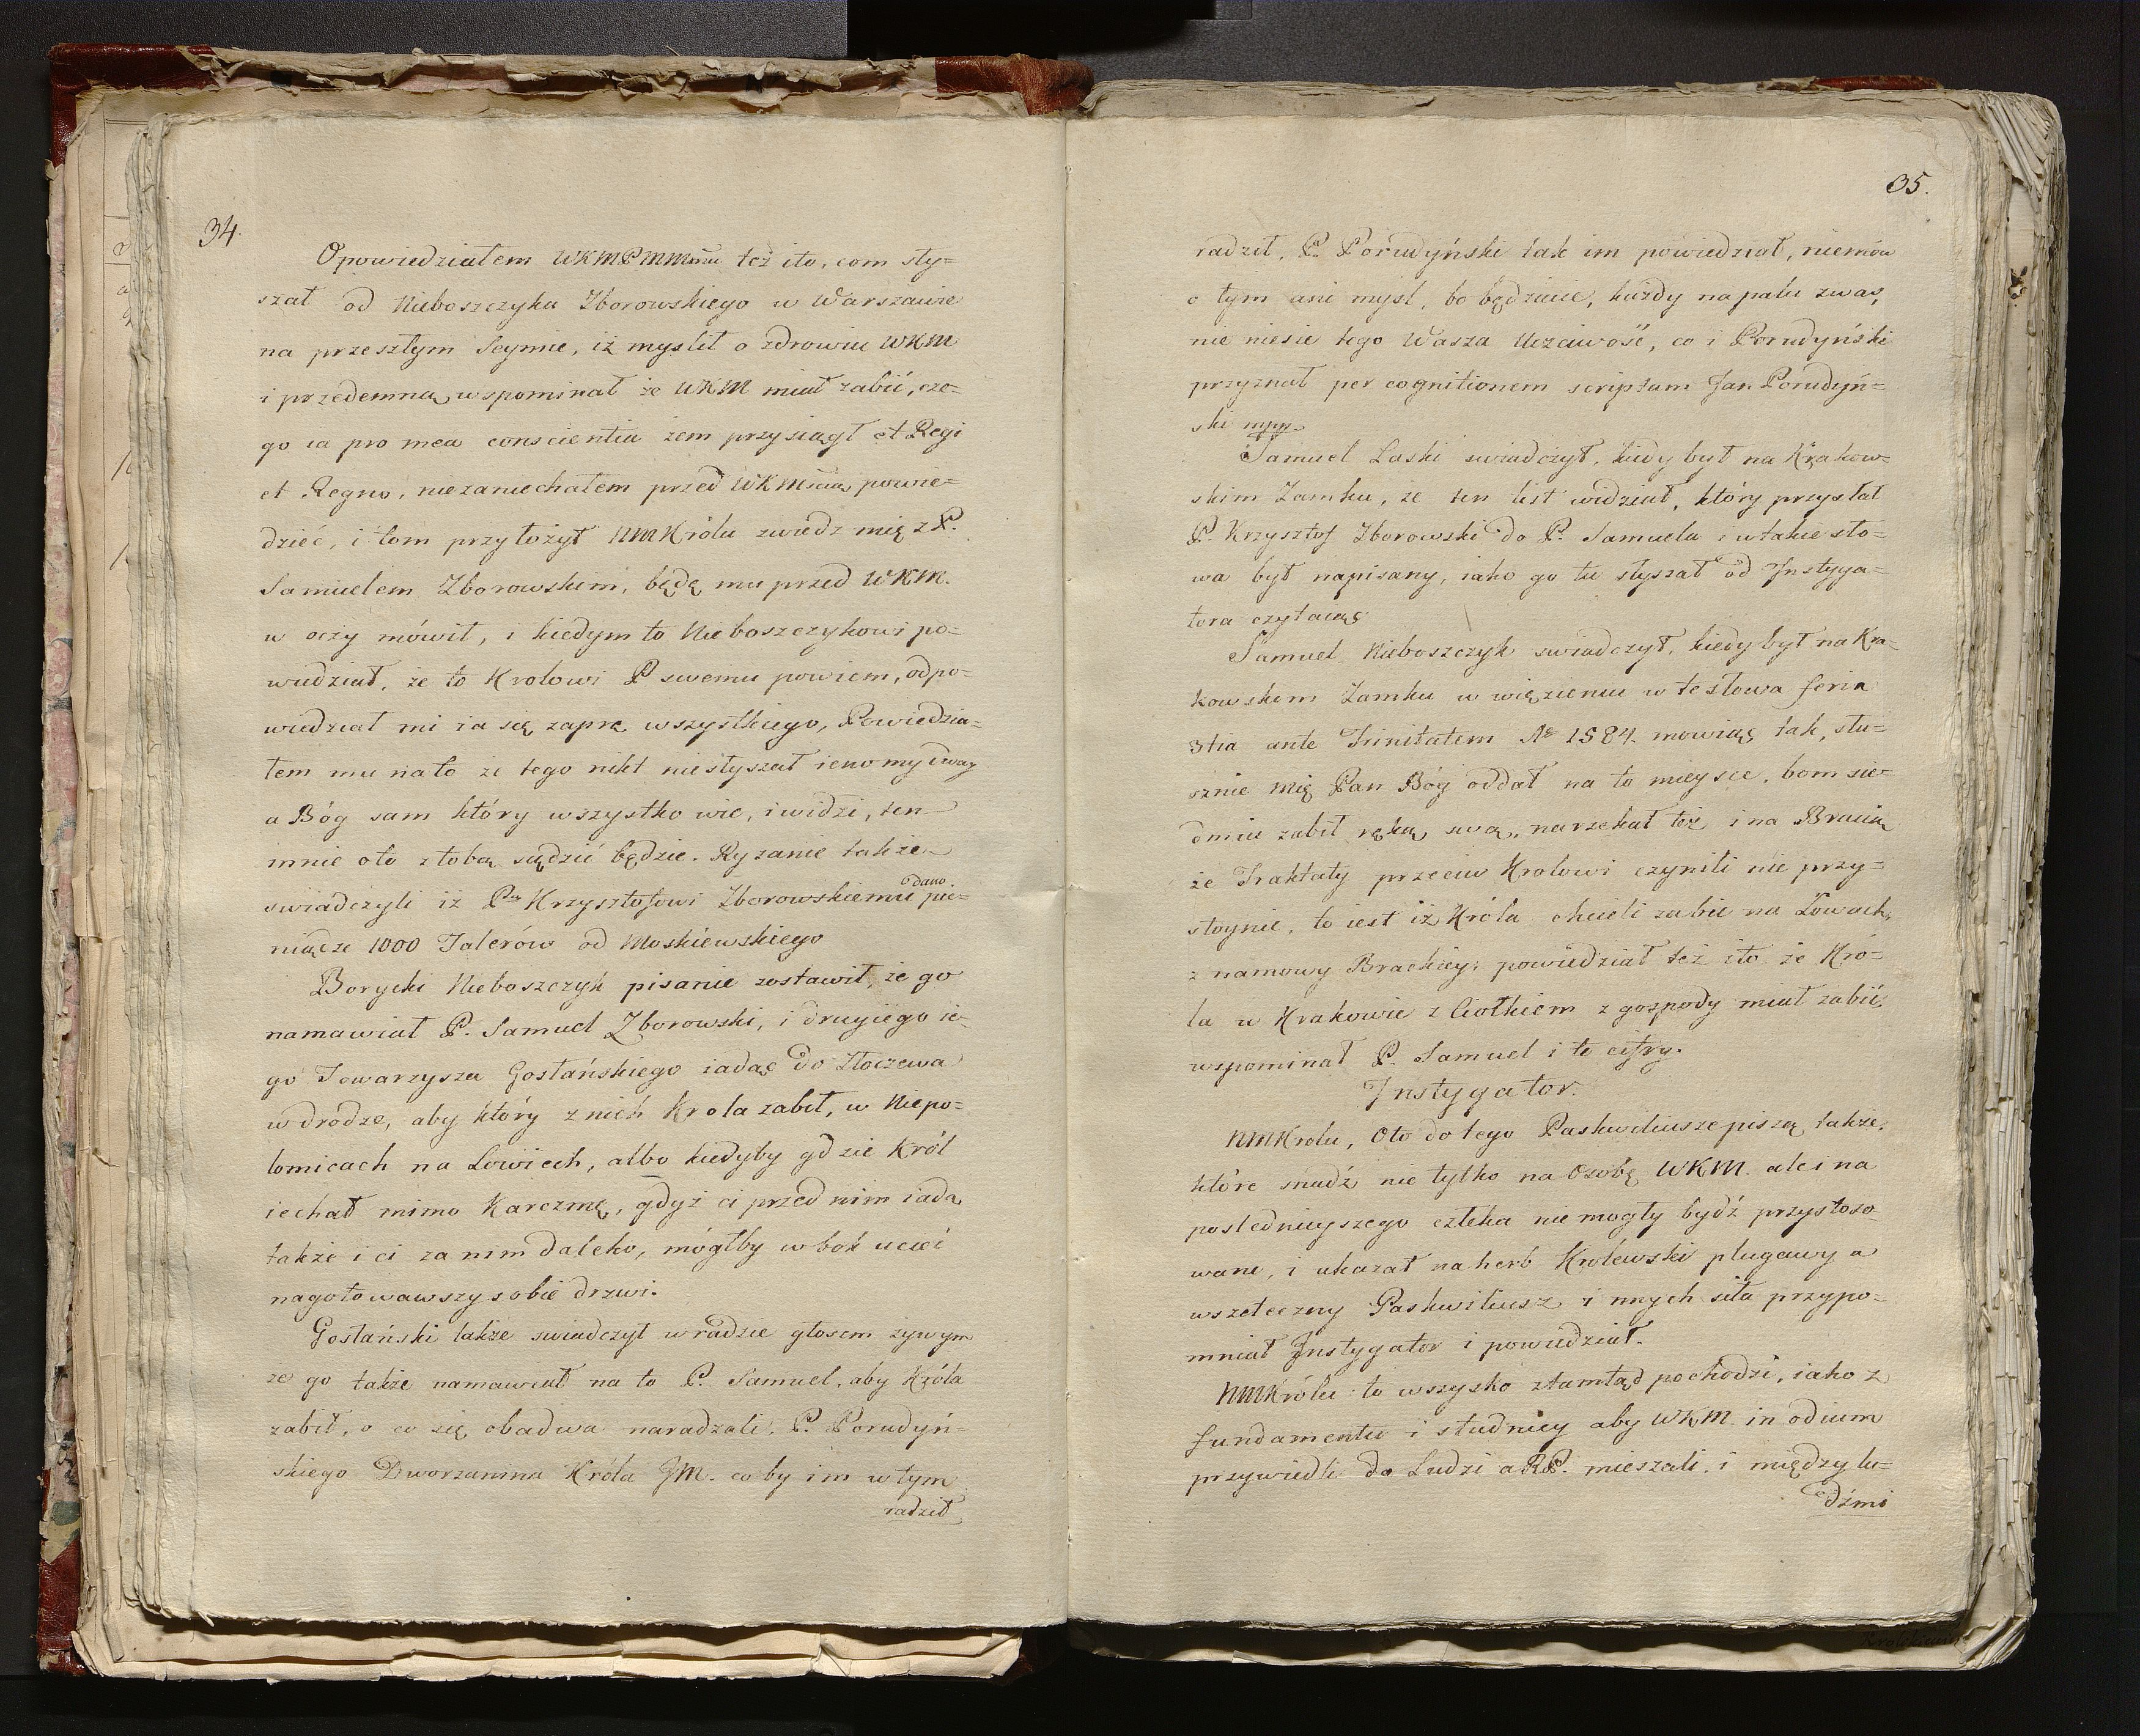 34.
Opowiedziałem WKMPMMmu też ito, com sły=
szał od Nieboszczyka Zborowskiego w Warszawie
na przeszłym Seymie, iż myslił o zdrowiu WKM
i przedemną wspominał że WKM miał zabić, cze=
go ia pro mea conscientia żem przysiągł et Regi
et Regno, niezaniechałem przed WKMcią powie=
dzieć, i tom przyłożył NMKrólu zwiedz mię z P.
Samuelem Zborowskim, będę mu przed WKM.
w oczy mówił, i kiedym to Nieboszczykowi po=
wiedział, że to Krolowi P swemu powiem, odpo=
wiedział mi ia się zaprę wszystkiego, Powiedzia=
łem mu na to że tego nikt niesłyszał ieno my dway
a Bóg sam który wszystko wie, i widzi, ten
mnie oto z tobą sądzić będzie. Ryzanie także
odano.
swiadczyli iż Pu Krzysztofowi Zborowskiemu pie=
niądze 1000 Talerów od Moskiewskiego
Borycki Nieboszczyk pisanie zostawił, że go
namawiał P. Samuel Zborowski, i drugiego ie=
go Towarzysza Gostańskiego iadąc do Złoczewa
w drodze, aby który z nich Krola zabił, w Niepo=
łomicach na Łowiech, albo kiedyby gdzie Król
iechał mimo Karczmę, gdyż ci przed nim iadą
także i ci za nim daleko, mógłby w bok ucieć
nagotowawszy sobie drzwi.
Gostański także swiadczył w radzie głosem żywym
że go także namawiał na to P. Samuel, aby Króla
zabił, o co się obadwa naradzali, P. Porudyń=
skiego Dworzanina Króla JM. co by im w tym
radził
35.
radził, P. Porudyński tak im powiedział, niemów
o tym ani mysl, bo będziecie, każdy na palu zwas,
nie niesie tego Wasza Uczciwość, co i Porudyński
przyznał per cognitionem scriptam Jan Porudyń=
ski mpp
Samuel Laski swiadczył, kiedy był na Krakow=
skim Zamku, że ten list widział, który przysłał
P. Krzysztof Zborowski do P. Samuela i w takie sło=
wa był napisany, iako go tu słyszał od Instyga=
tora czytaiąc
Samuel Nieboszczyk swiadczył, kiedy był na Kra=
kowskim Zamku w więzieniu w te słowa feria
3tia ante Trinitatem Ao 1584. mowiąc tak, słu=
sznie mię Pan Bóg oddał na to mieysce, bom sie=
dmiu zabił ręką swą, narzekał też i na Bracią
że Traktaty przeciw Krolowi czynili nie przy=
stoynie, to iest iż Króla chcieli zabić na Łowach,
z namowy Brackiey, powiedział też ito że Kró=
la w Krakowie z Ciołkiem z gospody miał zabić,
wspominał P. Samuel i te cifry.
Instygator.
NMKrolu, Oto do tego Paskwiliusze piszą także,
które snadź nie tylko na Osobę WKM. ale i na
posledniyszego człeka nie mogły bydź przystoso=
wane, i ukazał na herb Królewski plugawy a
wszeteczny Paskwiliusz i innych siła przypo=
mniał Instygator i powiedział.
NMKrólu to wszysko ztamtąd pochodzi, iako z
fundamentu i studnicy aby WKM. in odium
przywiedli do Ludzi a RP. mieszali, i między lu=
dźmi